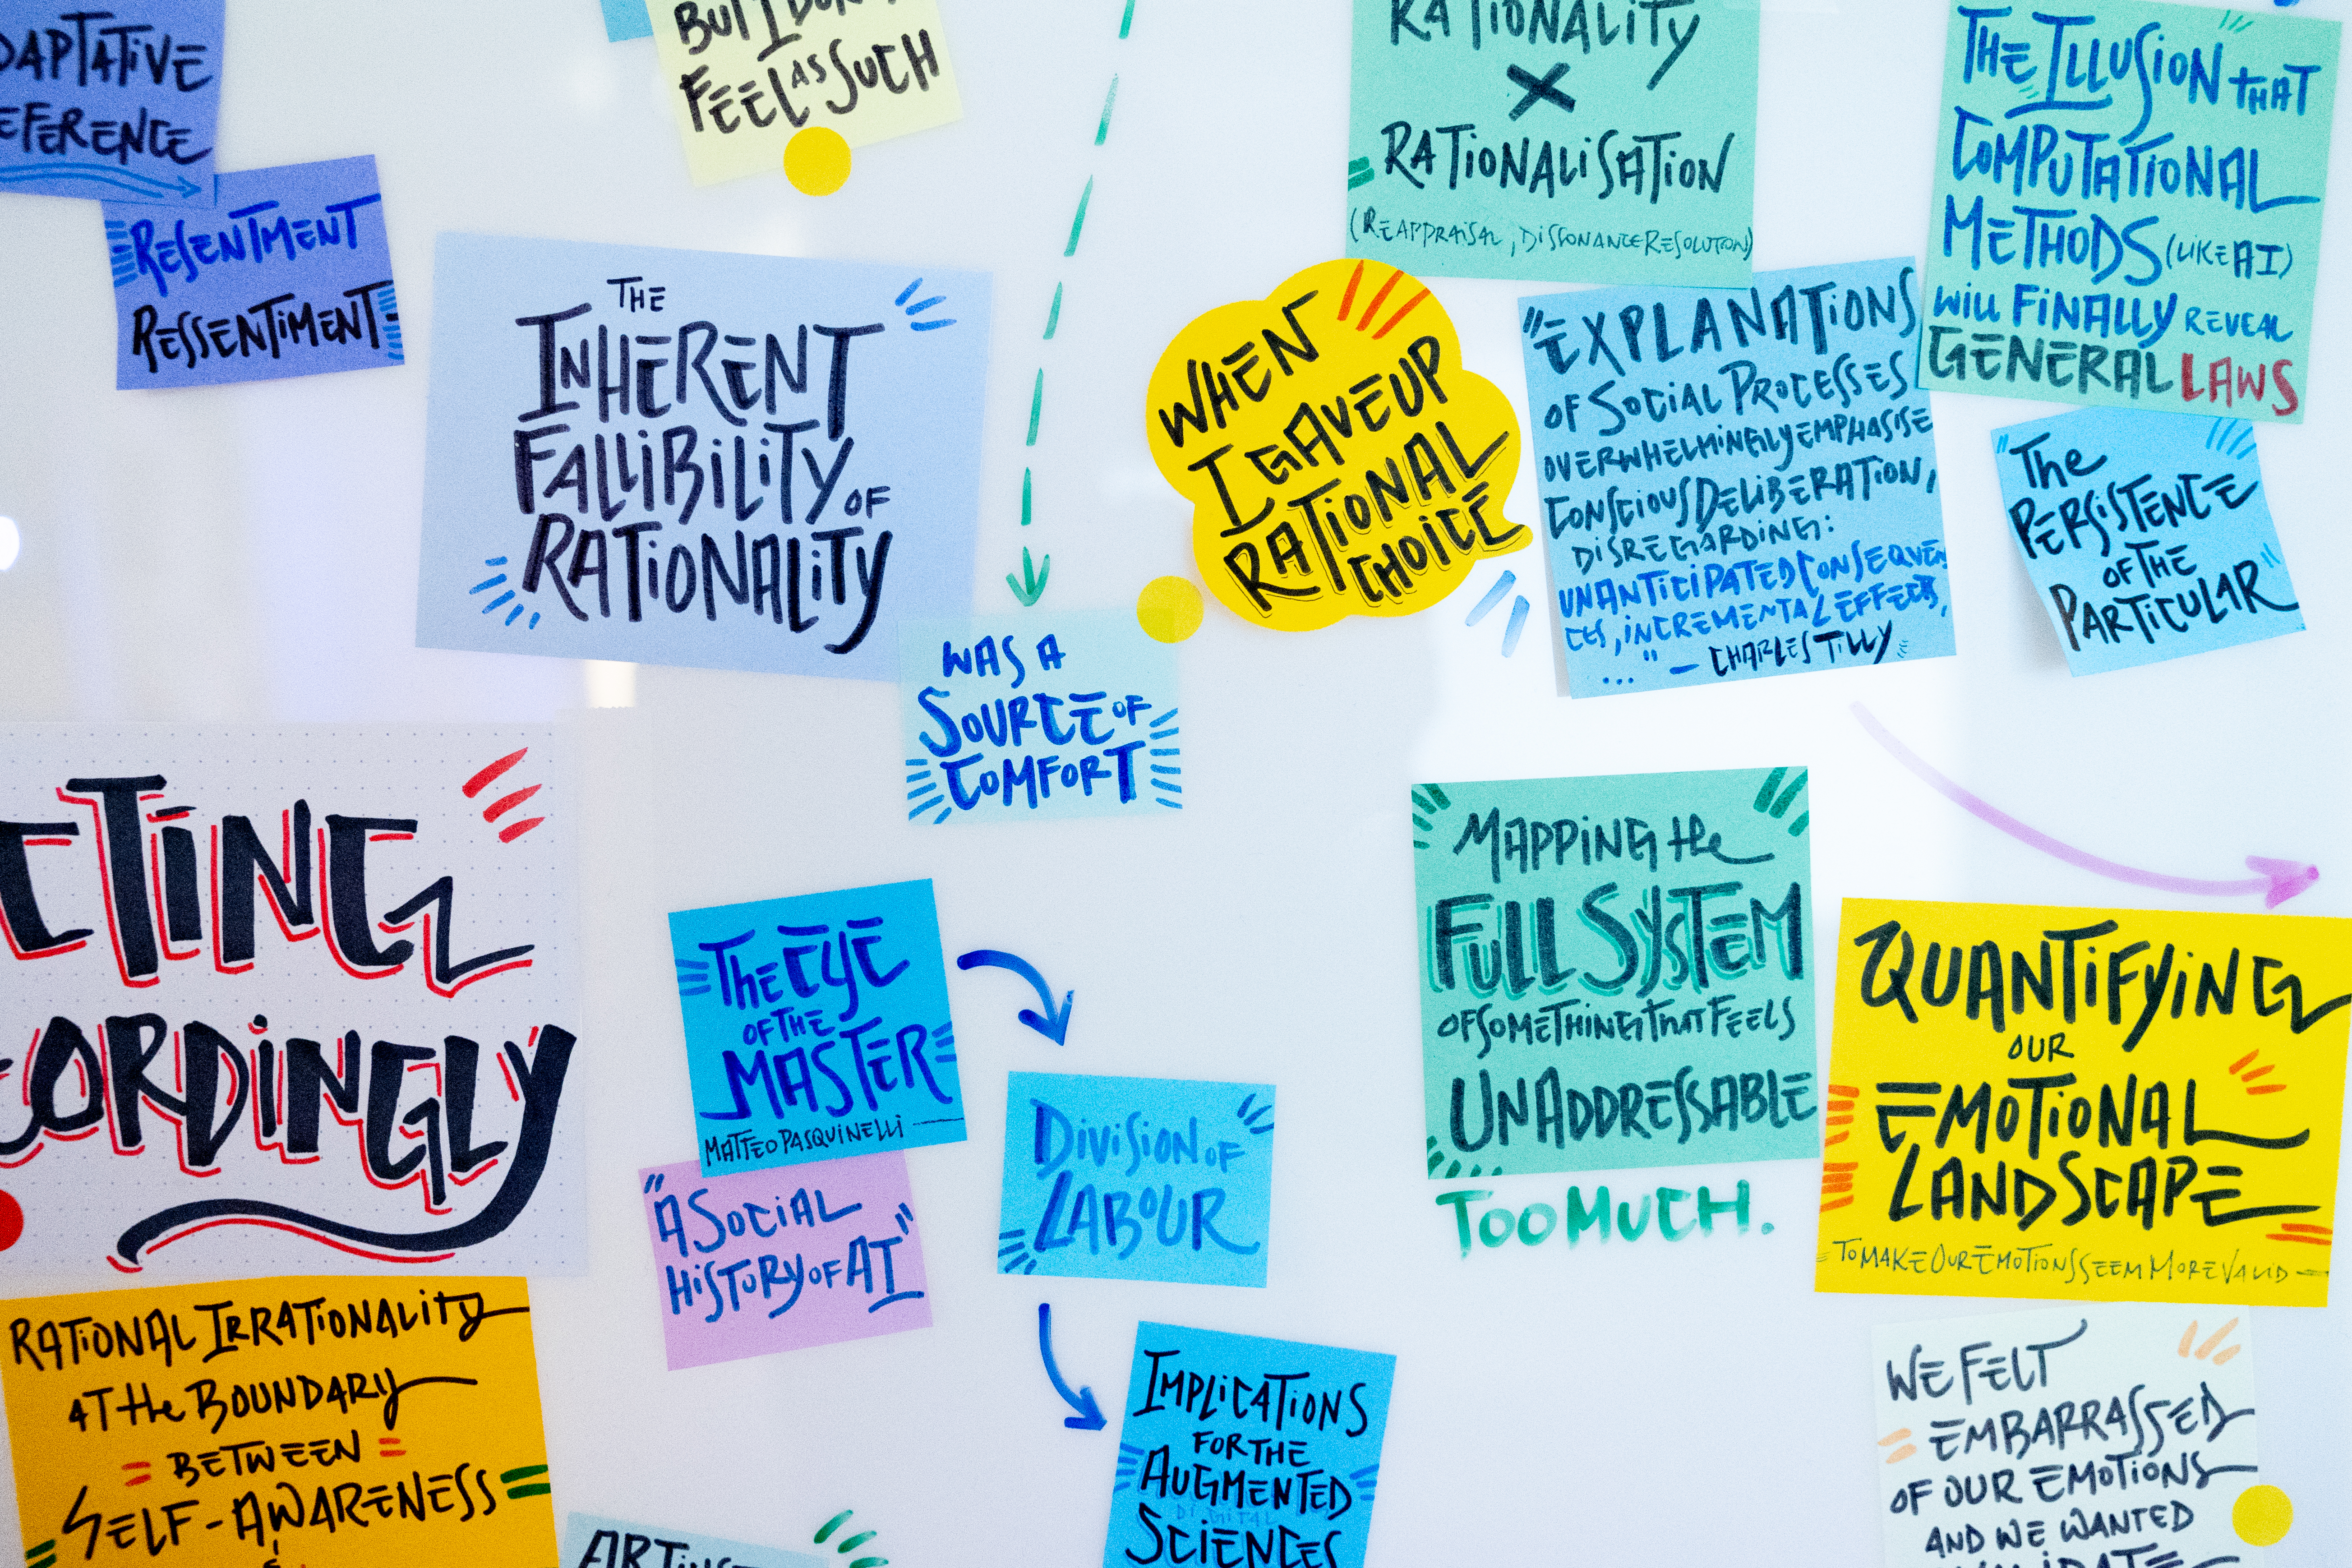 DAPTATIVE
EFERENCE
RESENTMENT
RESSENTIMENT
BUT I DON'T
FEEL AS SUCH
THE
INHERENT
FALLIBILITY OF
RATIONALITY
WAS A
SOURCE OF
COMFORT
WHEN
I GAVE UP
RATIONAL
CHOICE
RATIONALITY
X
RATIONALISATION
(REAPPRAISAL, DISSONANCE RESOLUTION)
"EXPLANATIONS
OF SOCIAL PROCESSES
OVERWHELMINGLY EMPHASISE
CONSCIOUS DELIBERATION,
DISREGARDING:
UNANTICIPATED CONSEQUEN
CES, INCREMENTAL EFFECTS,
..." – CHARLES TILLY
THE ILLUSION THAT
COMPUTATIONAL
METHODS (LIKE AI)
WILL FINALLY REVEAL
GENERAL LAWS
The
PERSISTENCE
OF THE
PARTICULAR
CTING
CORDINGLY
RATIONAL IRRATIONALITY
AT the BOUNDARY
= BETWEEN =
SELF-AWARENESS
The EYE
OF THE
MASTER
MATTEO PASQUINELLI
"A SOCIAL
HISTORY OF AI"
DIVISION OF
LABOUR
IMPLICATIONS
FOR THE
AUGMENTED
DIGITAL
SCIENCES
MAPPING the
FULL SYSTEM
OF SOMETHING THAT FEELS
UNADDRESSABLE
TOO MUCH.
QUANTIFYING
OUR
EMOTIONAL
LANDSCAPE
TO MAKE OUR EMOTIONS SEEM MORE VALID
WE FELT
EMBARRASSED
OF OUR EMOTIONS
AND WE WANTED